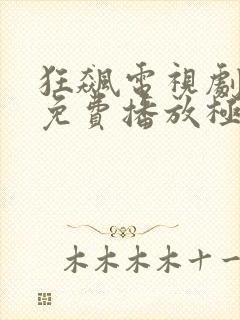 狂飆電視劇
免費播放極
木木木木十一